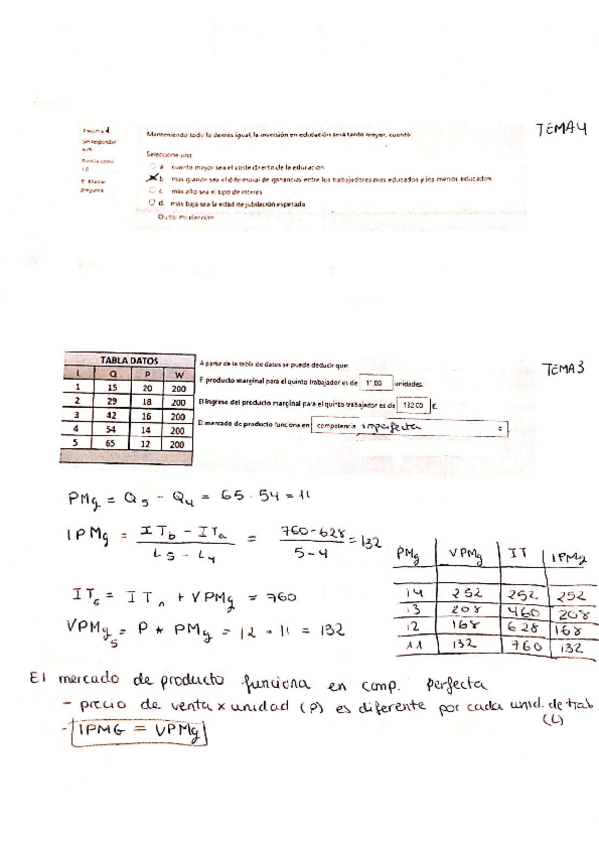 Pregunta 4
Sin responder aún
Puntúa como 1.0
Marcar pregunta
Manteniendo todo lo demás igual, la inversión en educación será tanto mayor, cuanto:
TEMA 4
Seleccione una:
a. cuanto mayor sea el coste directo de la educación
b. más grande sea el diferencial de ganancias entre los trabajadores más educados y los menos educados
c. más alto sea el tipo de interés
d. más baja sea la edad de jubilación esperada
Quitar mi elección
TABLA DATOS
L Q P W
1 15 20 200
2 29 18 200
3 42 16 200
4 54 14 200
5 65 12 200
A partir de la tabla de datos se puede deducir que:
TEMA 3
El producto marginal para el quinto trabajador es de 11.00 unidades.
El ingreso del producto marginal para el quinto trabajador es de 132.00 €.
El mercado de producto funciona en competencia imperfecta
PMg = Q5 - Q4 = 65 - 54 = 11
IPMg = ITb - ITa / L5 - L4 = 760-628 / 5-4 = 132
PMg VPMg IT IPMg
14 252 252 252
13 208 460 208
12 168 628 168
11 132 760 132
IT5 = ITn + VPMg = 760
VPMg5 = P * PMg = 12 · 11 = 132
El mercado de producto funciona en comp. perfecta
- precio de venta x unidad (P) es diferente por cada unid. de trab (L)
- IPMG = VPMg